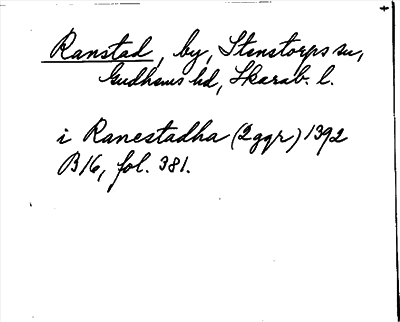 Ranstad, by, Stenstorps sn,
Gudhems hd, Skarab. l.
i Ranestadha (2 ggr) 1392
B16, fol. 381.